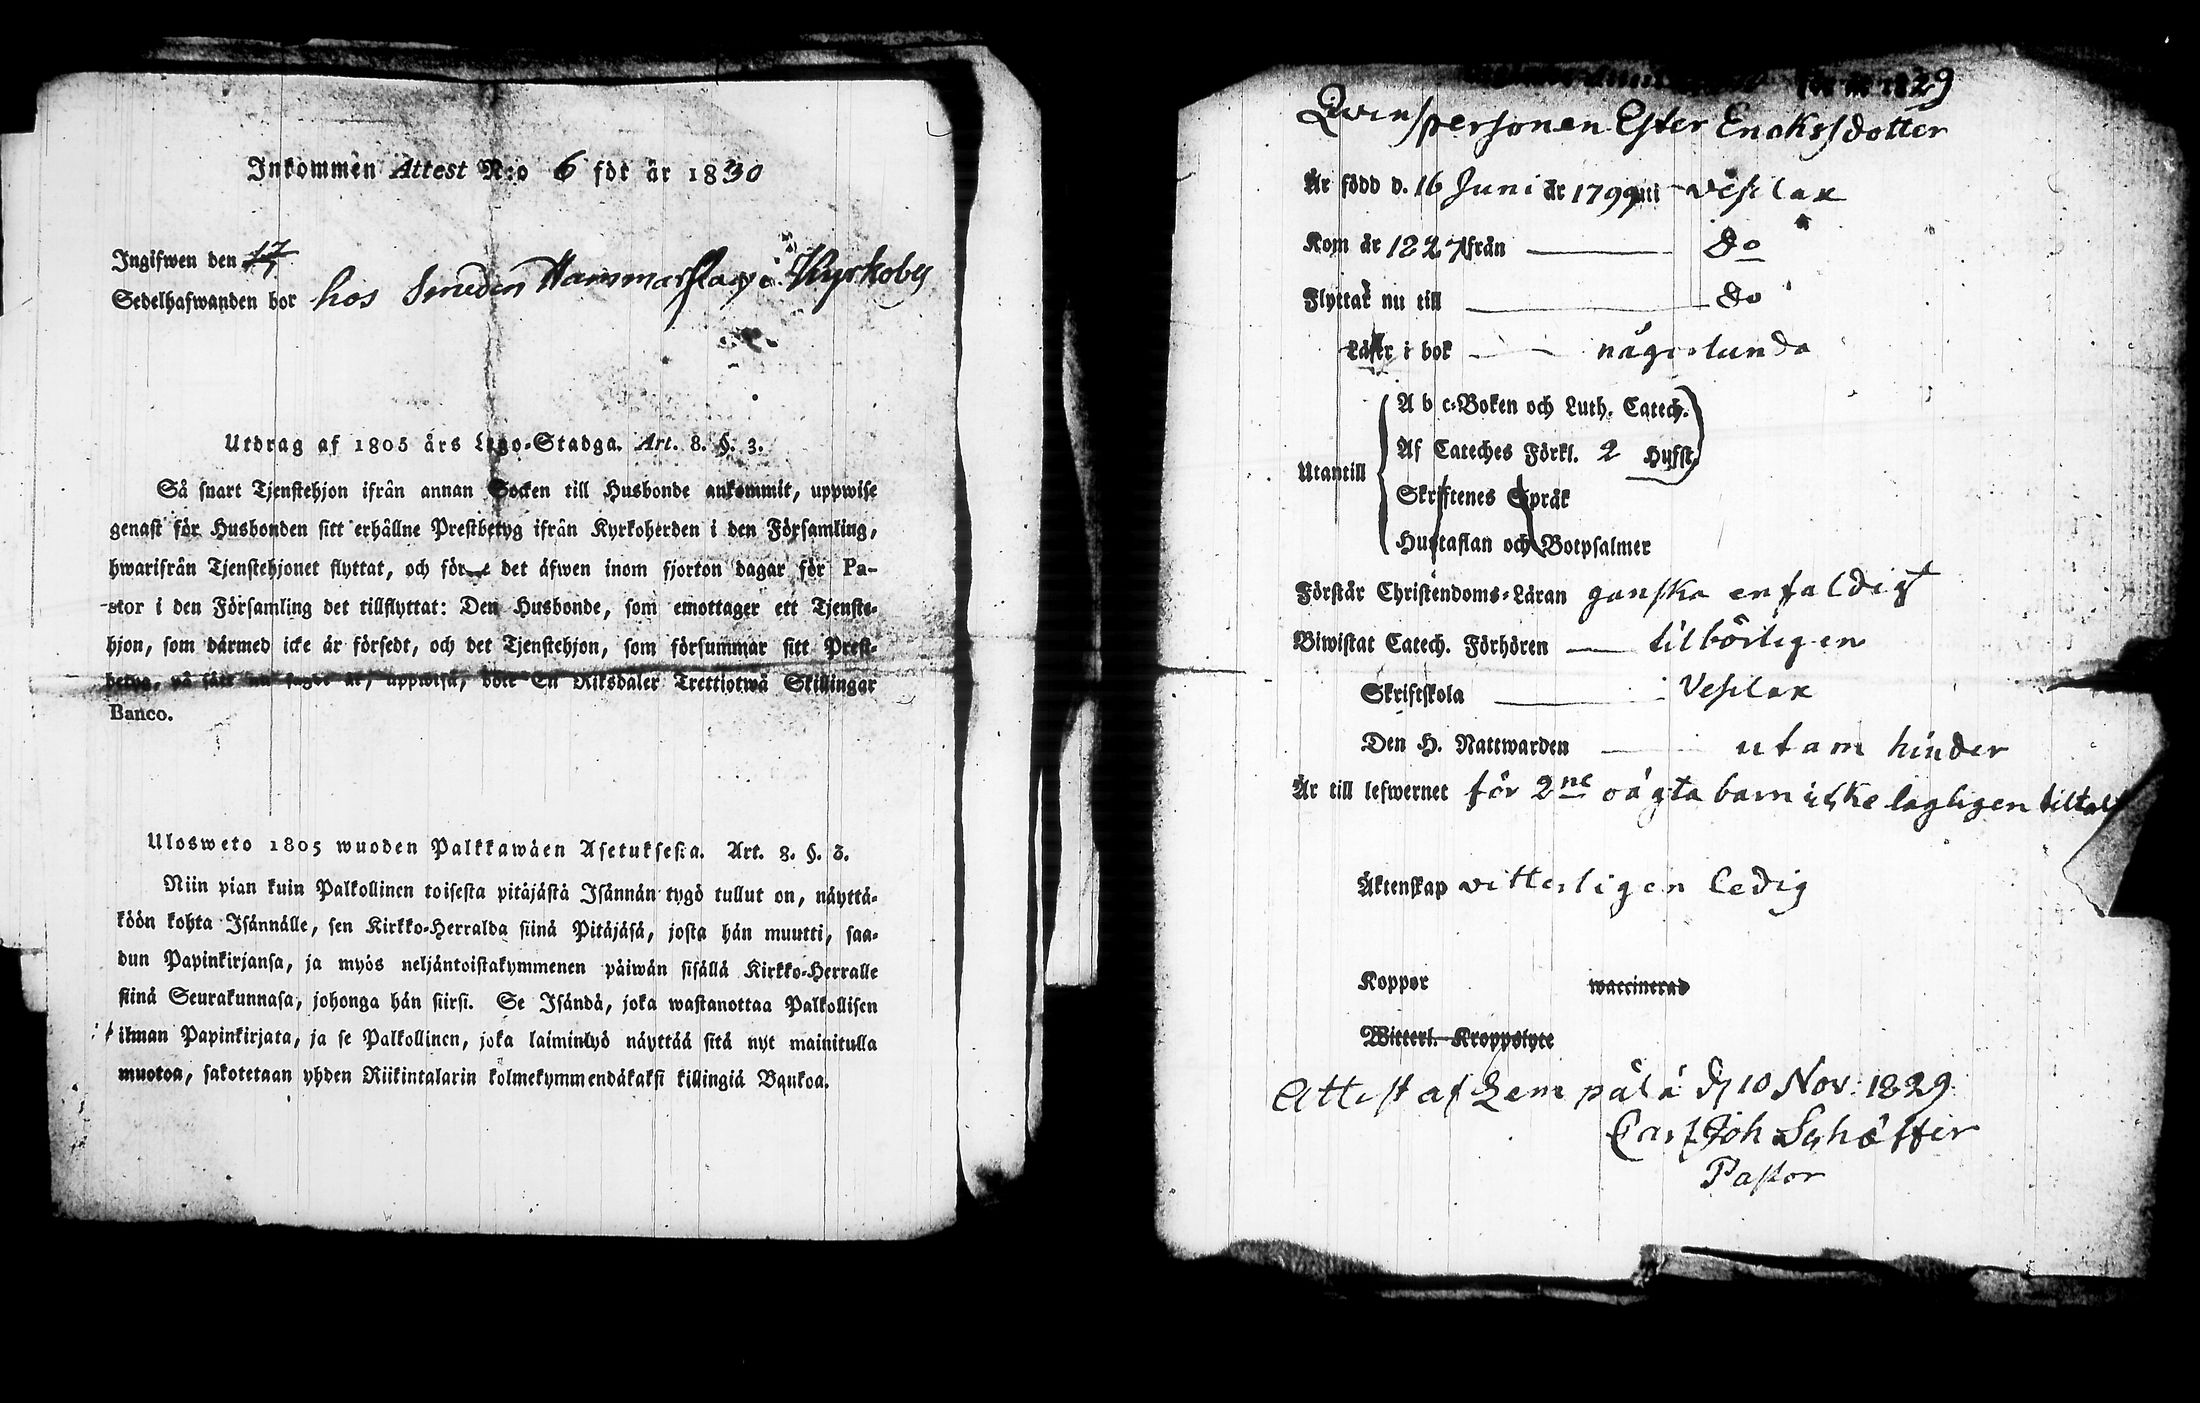 Inkommen Attest N:o 6 för år 1830
Ingifwen den
Sedelhafwanden bor hos Smeden Hammarslag i Kyrkoby
Utdrag af 1805 års Lego-Stadga. Art. 8. §. 3.
Så snart Tjenstehjon ifrån annan Socken till Husbonde ankommit, uppwise
genast för Husbonden sitt erhållne Prestbetyg ifrån Kyrkoherden i den Församling,
hwarifrån Tjenstehjonet flyttat, och före det äfwen inom fjorton dagar för Pa-
stor i den Församling det tillflyttat: Den Husbonde, som emottager ett Tjenste-
hjon, som därmed icke är försedt, och det Tjenstehjon, som försummar sitt Prest-
betyg, på sätt nu sagdt är, uppwisa, böte En Riksdaler Trettiotwå Skillingar
Banco.
Ulosweto 1805 wuoden Palkkawäen Asetuksesta. Art. 8. §. 3.
Niin pian kuin Palkollinen toisesta pitäjästä Isännän tygö tullut on, näyttä-
köön kohta Isännälle, sen Kirkko-Herralda siinä Pitäjäsä, josta hän muutti, saa-
dun Papinkirjansa, ja myös neljäntoistakymmenen päiwän sisällä Kirkko-Herralle
siinä Seurakunnasa, johonga hän siirsi. Se Isändä, joka wastanottaa Palkollisen
ilman Papinkirjata, ja se Palkollinen, joka laiminlyö näyttää sitä nyt mainitulla
muotoa, sakotetaan yhden Riikintalarin kolmekymmendäkaksi killingiä Bankoa.
för år 1829
Qvinspersonen Ester Enoksdotter
Är född d. 16 Juni år 1799 uti Vesilax
Kom år 1827 ifrån do
Flyttar nu till do
Läser i bok någorlunda
Utantill
A b c-Boken och Luth. Catech.
Af Cateches Förkl. 2 Hufst.
Skriftenes Språk
Hustaflan och Botpsalmer
Förstår Christendoms-Läran ganska enfaldigt
Biwistat Catech. Förhören tilbörligen
Skriftskola Vesilax
Den H. Nattwarden utam hinder
Är till lefwernet för 2ne oägta barn icke lagligen tiltalt
Äktenskap vitterligen ledig
Koppor waccinerad
Witterl. Kroppslyte
Attest af Lempälä d 10 Nov. 1829
Carl Joh Schäffer
Pastor